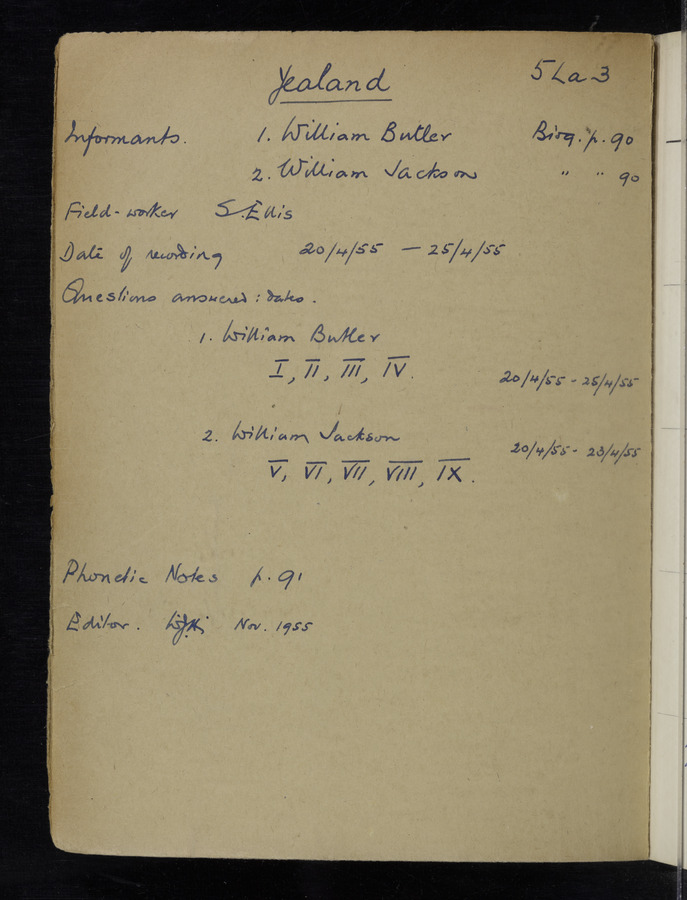 Yealand 5 La 3
Informants. 1. William Butler Biog. p. 90
2. William Jackson " " 90
Field-worker S. Ellis
Date of recording 20/4/55 — 25/4/55
Questions answered : dates.
1. William Butler
I, II, III, IV. 20/4/55 - 25/4/55
2. William Jackson 20/4/55 - 23/4/55
V, VI, VII, VIII, IX.
Phonetic Notes p. 91
Editor. Nov. 1955